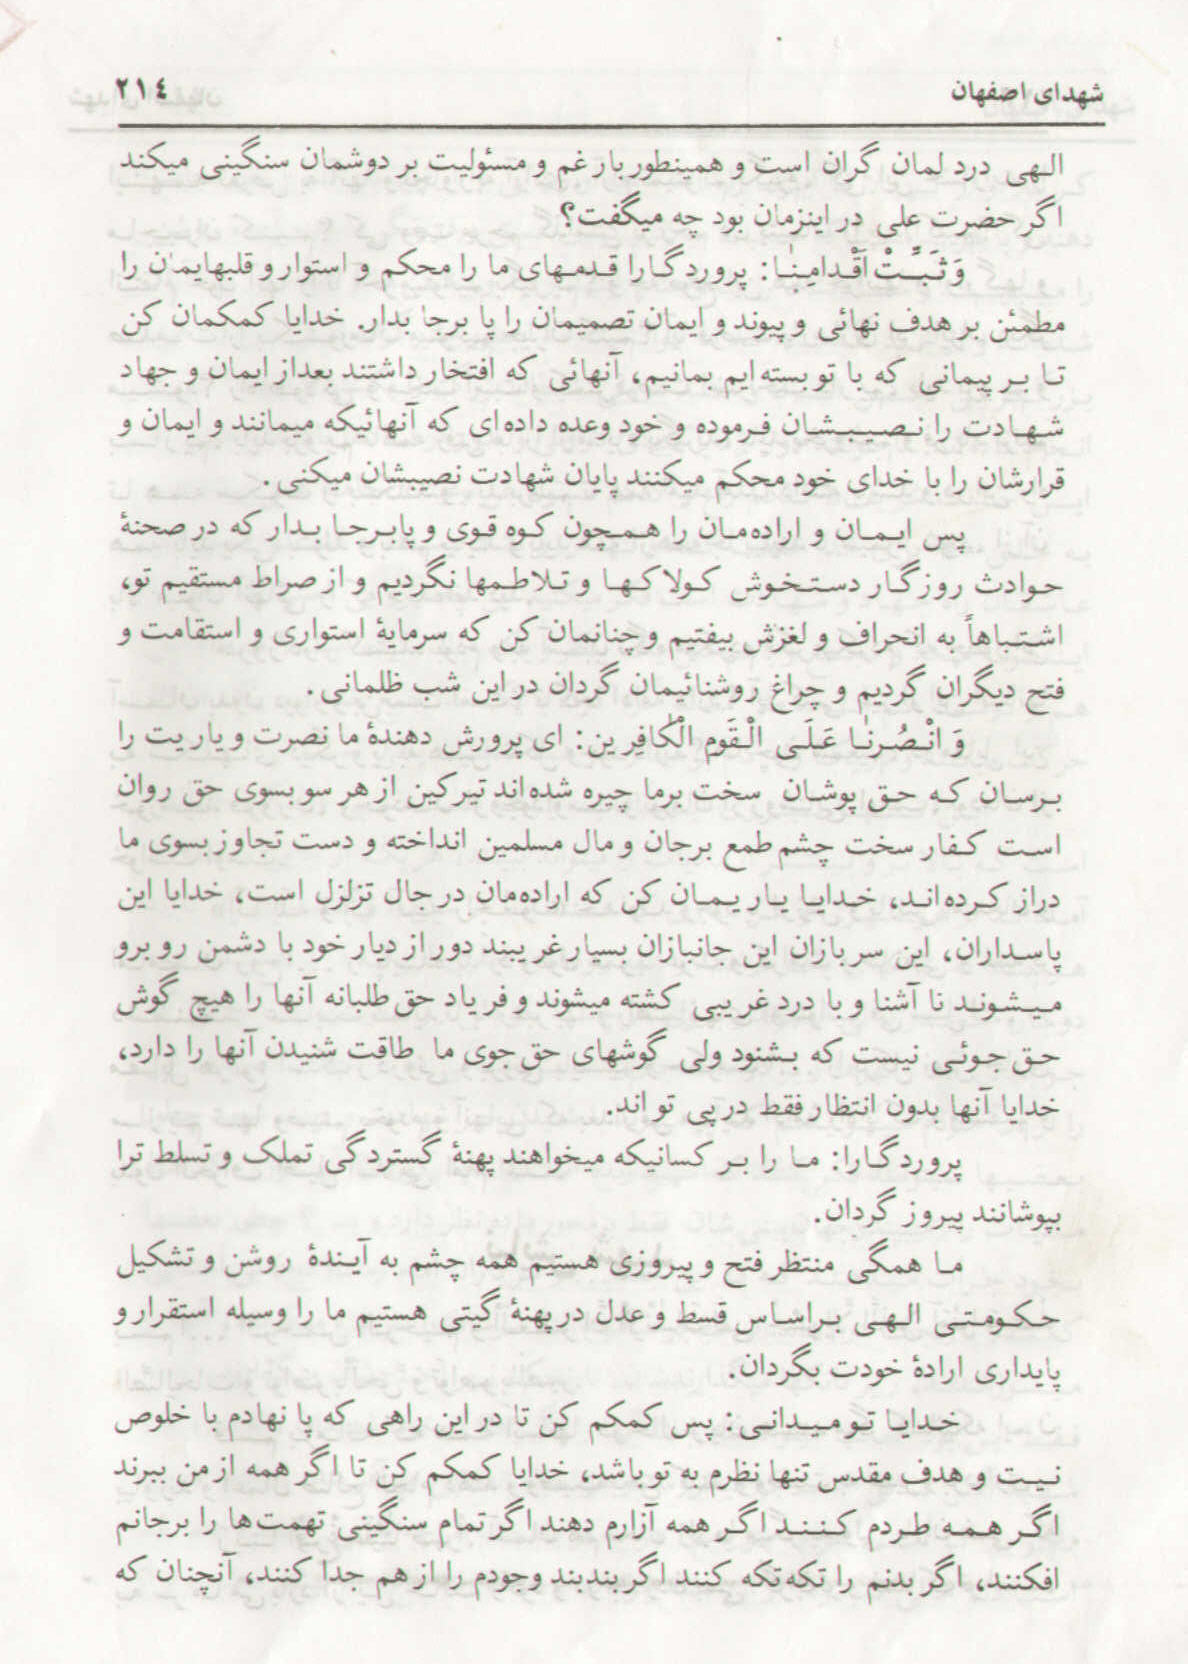 شهدای اصفهان ۲۱٤
الـهی درد لمان گران است و همینطور بار غم و مسئولیت بر دوشمان سنگینی میکند
اگر حضرت علی در اینزمان بود چه میگفت؟
وَ ثَبِّتْ اَقْدامِنٰا: پروردگارا قدمهای ما را محکم و استوار و قلبهایمان را
مطمئن بر هدف نهائی و پیوند و ایمان تصمیمان را پا برجا بدار. خدایا کمکمان کن
تا بر پیمانی که با تو بسته‌ایم بمانیم، آنهائی که افتخار داشتند بعداز ایمان و جهاد
شهادت را نصیبشان فرموده و خود وعده داده‌ای که آنهائیکه میمانند و ایمان و
قرارشان را با خدای خود محکم میکنند پایان شهادت نصیبشان میکنی.
پس ایمان و اراده‌مان را همچون کوه قوی و پابرجا بدار که در صحنهٔ
حوادث روزگار دستخوش کولاکها و تلاطمها نگردیم و از صراط مستقیم تو،
اشتباهاً به انحراف و لغزش بیفتیم و چنانمان کن که سرمایهٔ استواری و استقامت و
فتح دیگران گردیم و چراغ روشنائیمان گردان در این شب ظلمانی.
وَ انْصُرنٰا عَلَی الْقَومِ الْکٰافِرین: ای پرورش دهندهٔ ما نصرت و یاریت را
برسان که حق پوشان سخت برما چیره شده‌اند تیرکین از هر سو بسوی حق روان
است کفار سخت چشم طمع برجان و مال مسلمین انداخته و دست تجاوز بسوی ما
دراز کرده‌اند، خدایا یاریمان کن که اراده‌مان در جال تزلزل است، خدایا این
پاسداران، این سربازان این جانبازان بسیار غریبند دور از دیار خود با دشمن روبرو
میشوند نا آشنا و با درد غریبی کشته میشوند و فریاد حق طلبانه آنها را هیچ گوش
حق جوئی نیست که بشنود ولی گوشهای حق جوی ما طاقت شنیدن آنها را دارد،
خدایا آنها بدون انتظار فقط در پی تو اند.
پروردگارا: ما را بر کسانیکه میخواهند پهنهٔ گستردگی تملک و تسلط ترا
بپوشانند پیروز گردان.
ما همگی منتظر فتح و پیروزی هستیم همه چشم به آیندهٔ روشن و تشکیل
حکومتی الهی براساس قسط و عدل در پهنهٔ گیتی هستیم ما را وسیله استقرار و
پایداری ارادهٔ خودت بگردان.
خدایا تو میدانی: پس کمکم کن تا در این راهی که پا نهادم با خلوص
نیت و هدف مقدس تنها نظرم به تو باشد، خدایا کمکم کن تا اگر همه از من ببرند
اگر همه طردم کنند اگر همه آزارم دهند اگر تمام سنگینی تهمت‌ها را برجانم
افکنند، اگر بدنم را تکه تکه کنند اگر بندبند وجودم را از هم جدا کنند، آنچنان که